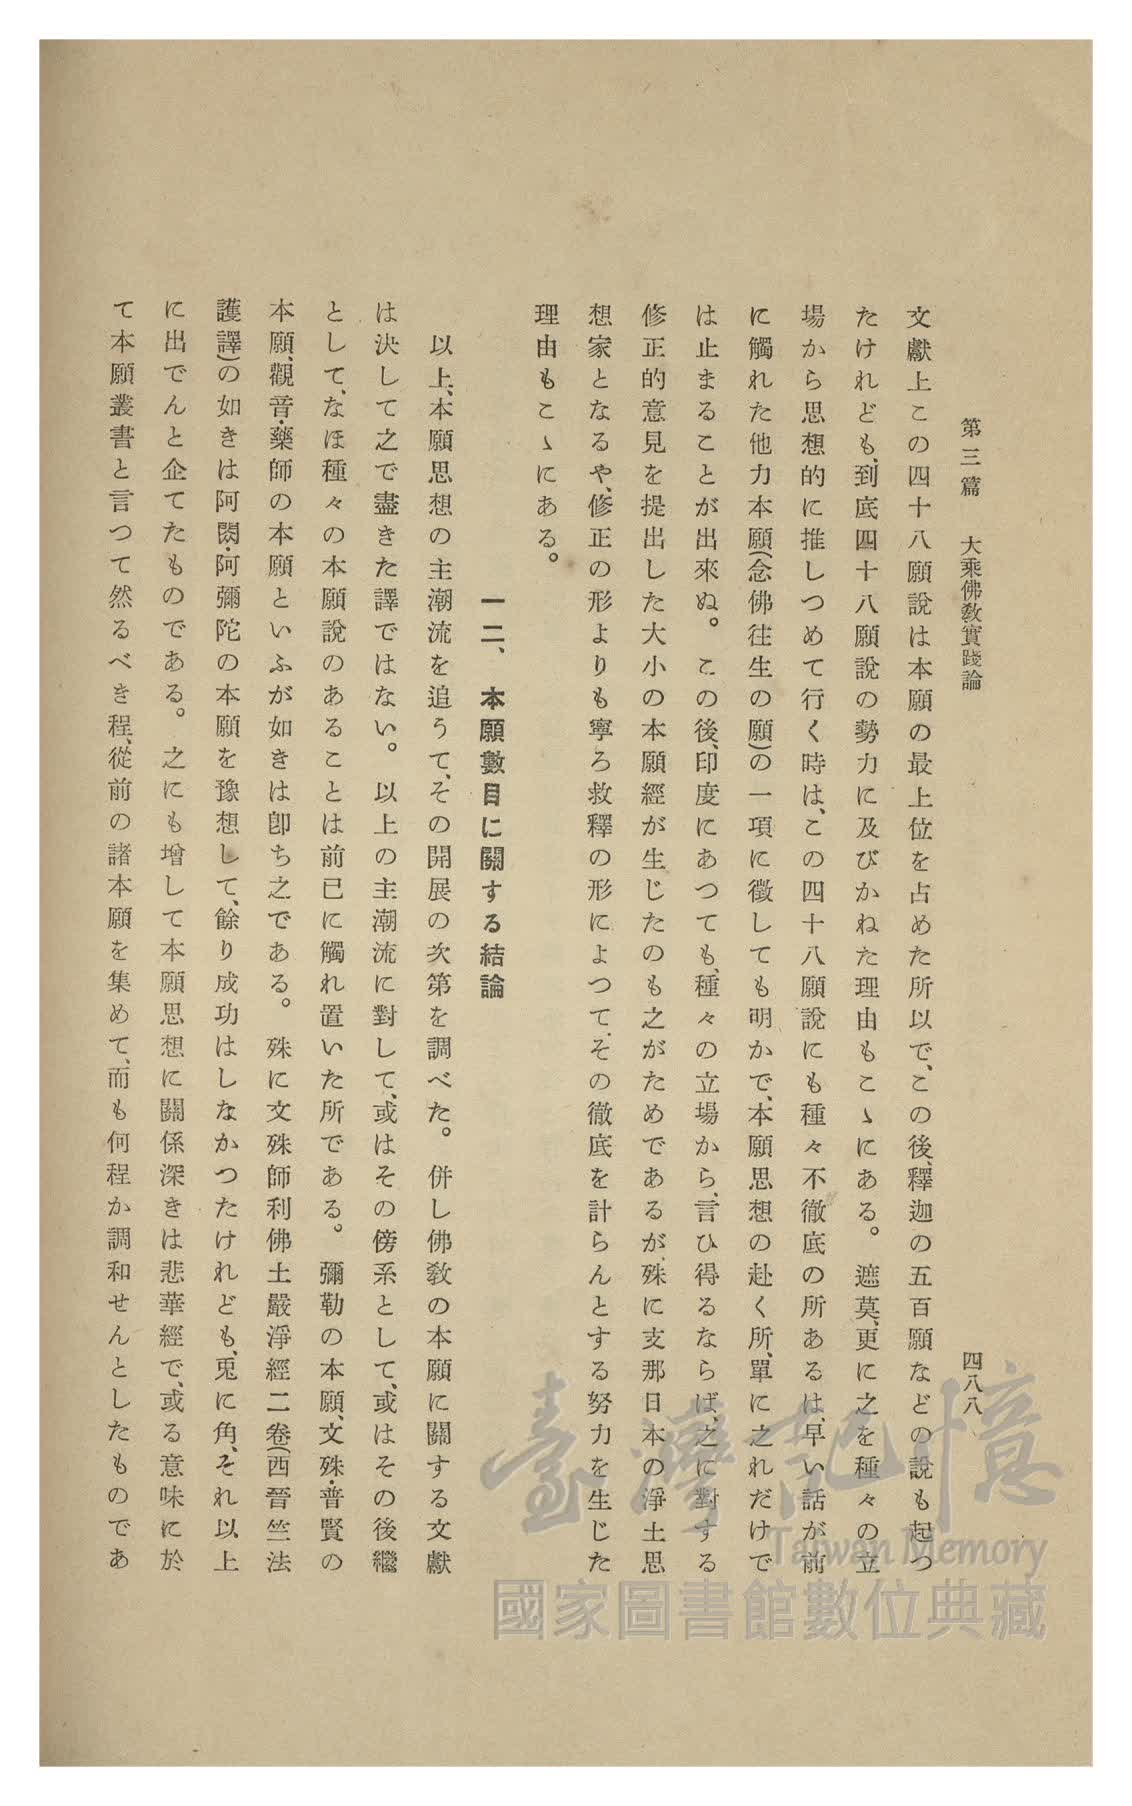 第三篇　大乘佛敎實踐論　四八八
文獻上この四十八願說は本願の最上位を占めた所以で、この後、釋迦の五百願などの說も起つ
たけれども、到底四十八願說の勢力に及びかねた理由もこゝにある。遮莫、更に之を種々の立
場から思想的に推しつめて行く時は、この四十八願說にも種々不徹底の所あるは、早い話が前
に觸れた他力本願(念佛往生の願)の一項に徵しても明かで、本願思想の赴く所、單に之れだけで
は止まることが出來ぬ。この後、印度にあつても、種々の立場から、言ひ得るならば、之に對する
修正的意見を提出した大小の本願經が生じたのも之がためであるが、殊に支那日本の淨土思
想家となるや、修正の形よりも寧ろ救釋の形によつて、その徹底を計らんとする努力を生じた
理由もこゝにある。
一二、本願數目に關する結論
以上、本願思想の主潮流を追うて、その開展の次第を調べた。併し佛敎の本願に關する文獻
は決して之で盡きた譯ではない。以上の主潮流に對して、或はその傍系として、或はその後繼
として、なほ種々の本願說のあることは前已に觸れ置いた所である。彌勒の本願、文殊・普賢の
本願、觀音・藥師の本願といふが如きは卽ち之である。殊に文殊師利佛土嚴淨經二卷(西晉竺法
護譯)の如きは阿閦・阿彌陀の本願を豫想して、餘り成功はしなかつたけれども、兎に角、それ以上
に出でんと企てたものである。之にも增して本願思想に關係深きは悲華經で、或る意味に於
て本願叢書と言つて然るべき程、從前の諸本願を集めて、而も何程か調和せんとしたものであ
臺灣記憶
Taiwan Memory
國家圖書館數位典藏